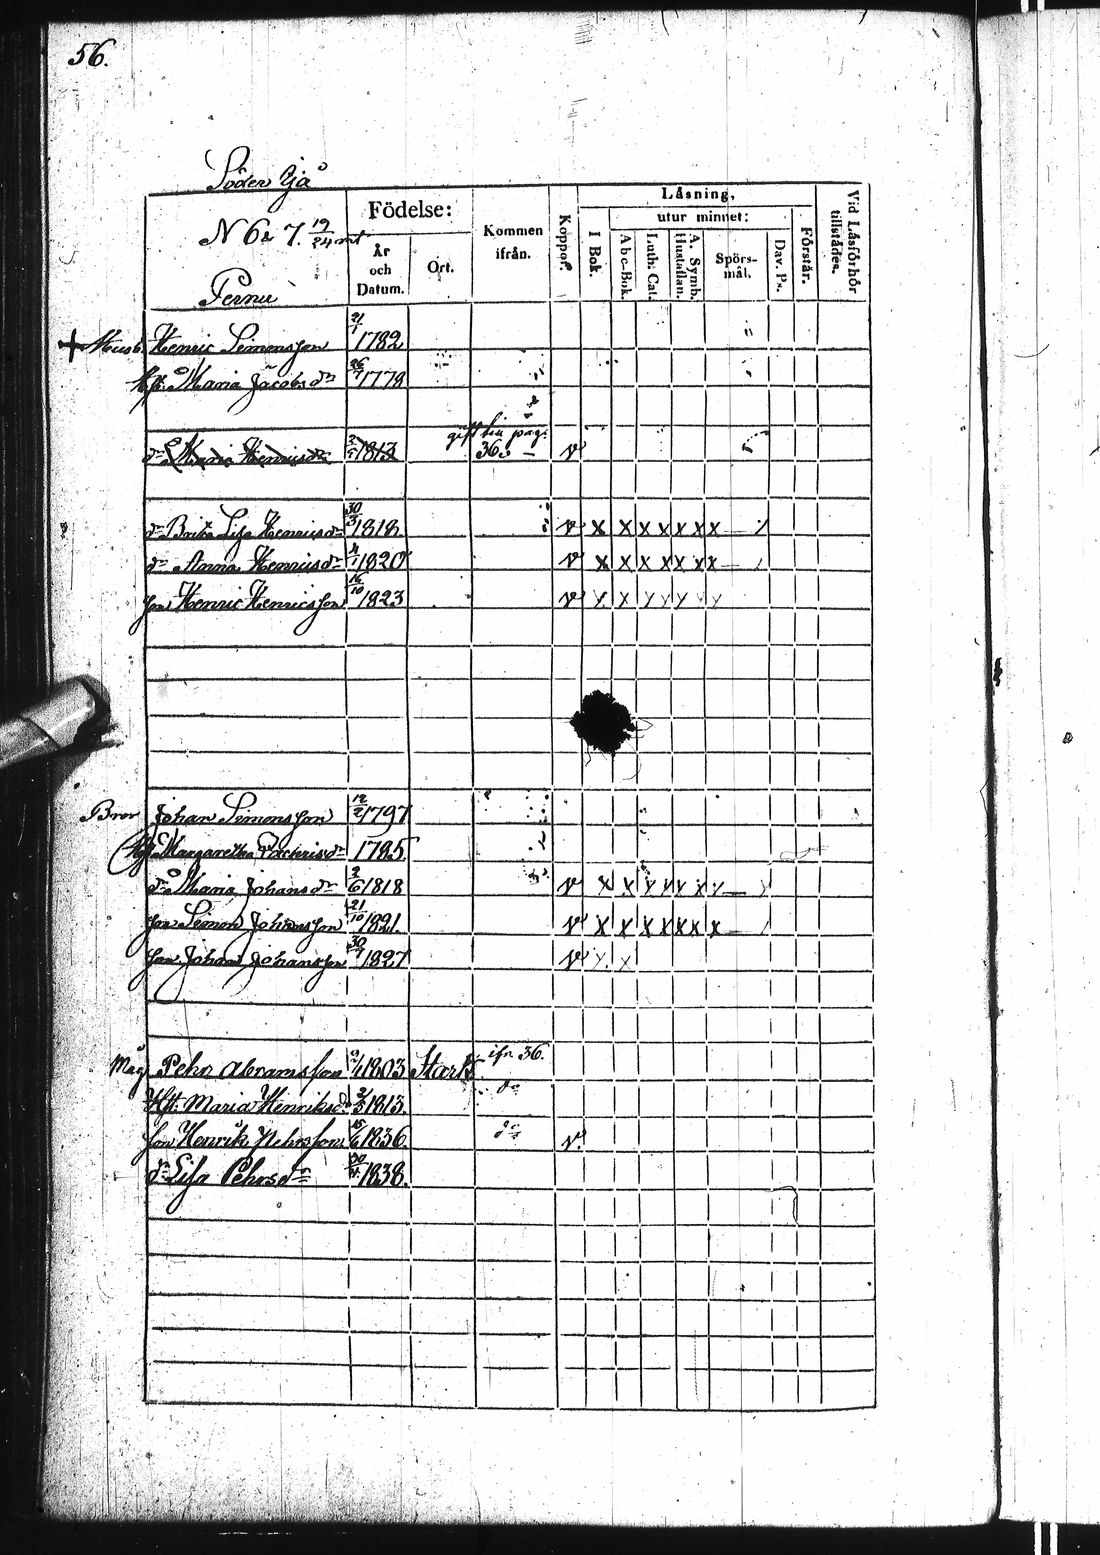 56.
Söder Yjå
N 6 & 7. 19/24 mt
Pernu
Födelse:
År och Datum.
Ort.
Kommen ifrån.
Koppor.
Läsning,
I Bok.
utur minnet:
Abc-Bok.
Luth: Cat.
A. Symb. Hustaflan.
Spörs-mål.
Dav. Ps.
Förstår.
Vid Läsförhör tillstädes.
Henric Simonsson 21/1 1782
Maria Jacobs dr 26/7 1778
dr Maria Henricsdr 1813 gift hin pag: 36 v
dr Brita Lisa Henricsdr 30/3 1818 v x x x x x x x
dr Anna Henricsdr 4/1 1820 v x x x x x x x
son Henric Henricsson 16/10 1823 v x x x x x x
Bror Johan Simonsson 12/2 1797
Margaretha 1795
dr Maria Johans dr 2/6 1818 v x x x x x x x
son Simon Johansson 21/10 1821 v x x x x x x x
son Johan Johansson 30/9 1827 v x x
Måg Pehr Abramsson 1803 Stark ifr 36.
Hst. Maria Henriksdr 2/5 1813. do
son Henrik Pehrsson 15/6 1836. do v.
dr Lisa Pehrsdr 1838.